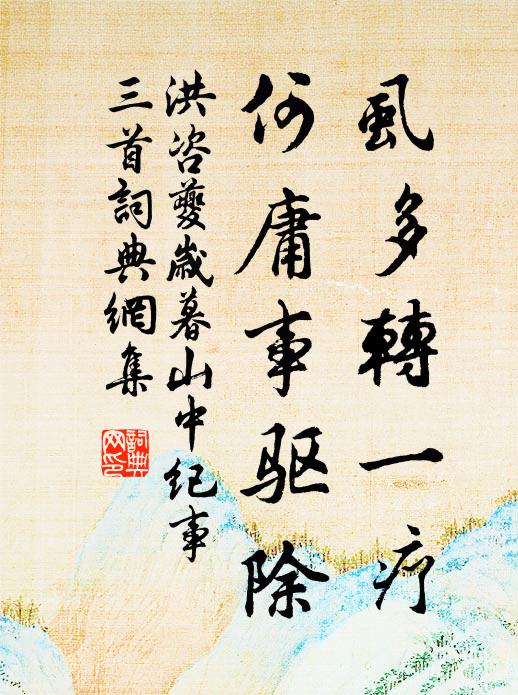 虱多轉一疗
何庸事驱除
洪咨夔歲暮山中纪事
三首詞典網集
詞典
网印